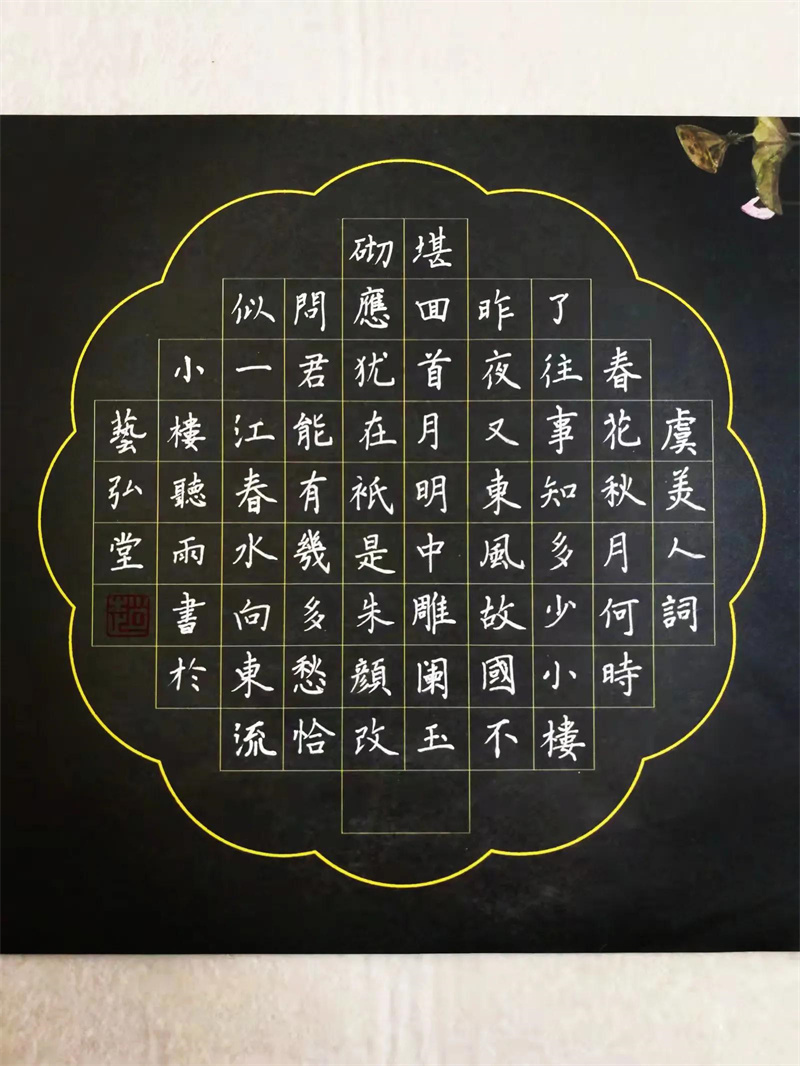 虞美人詞
春花秋月何時
了往事知多少小樓
昨夜又東風故國不
堪囬首月明中雕阑玉
砌應犹在衹是朱顏改
問君能有幾多愁恰
似一江春水向東流
小樓聽雨書於
藝弘堂